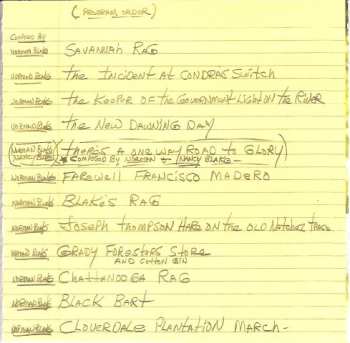 (PROGRAM ORDER)
COMPOSED BY
NORMAN BLAKE SAVANNAH RAG
NORMAN BLAKE the INCIDENT AT CONDRAS SWITCH
NORMAN BLAKE the KEEPER OF the GOVERNMENT LIGHT ON the RIVER
NORMAN BLAKE the NEW DAWNING DAY
(NORMAN BLAKE NANCY BLAKE) (thERE'S A ONE WAY ROAD TO GLORY)
COMPOSED BY NORMAN & NANCY BLAKE -
NORMAN BLAKE FAREWELL FRANCISCO MADERO
NORMAN BLAKE BLAKE'S RAG
NORMAN BLAKE JOSEPH THOMPSON HARE ON the OLD NATCHEZ TRACE
NORMAN BLAKE GRADY FORESTORS STORE
AND COTTON GIN
NORMAN BLAKE CHATTANOOGA RAG
NORMAN BLAKE BLACK BART
NORMAN BLAKE CLOVERDALE PLANTATION MARCH -